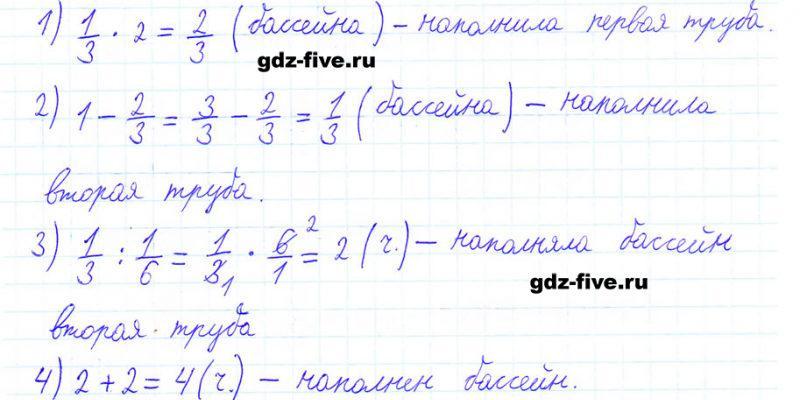 1) 1/3 · 2 = 2/3 (бассейна) – наполнила первая труба.
gdz-five.ru
2) 1 – 2/3 = 3/3 – 2/3 = 1/3 (бассейна) – наполнила
вторая труба.
3) 1/3 : 1/6 = 1/3₁ · 6²/1 = 2 (ч.) – наполняла бассейн
gdz-five.ru
вторая труба
4) 2 + 2 = 4 (ч.) – наполнен бассейн.